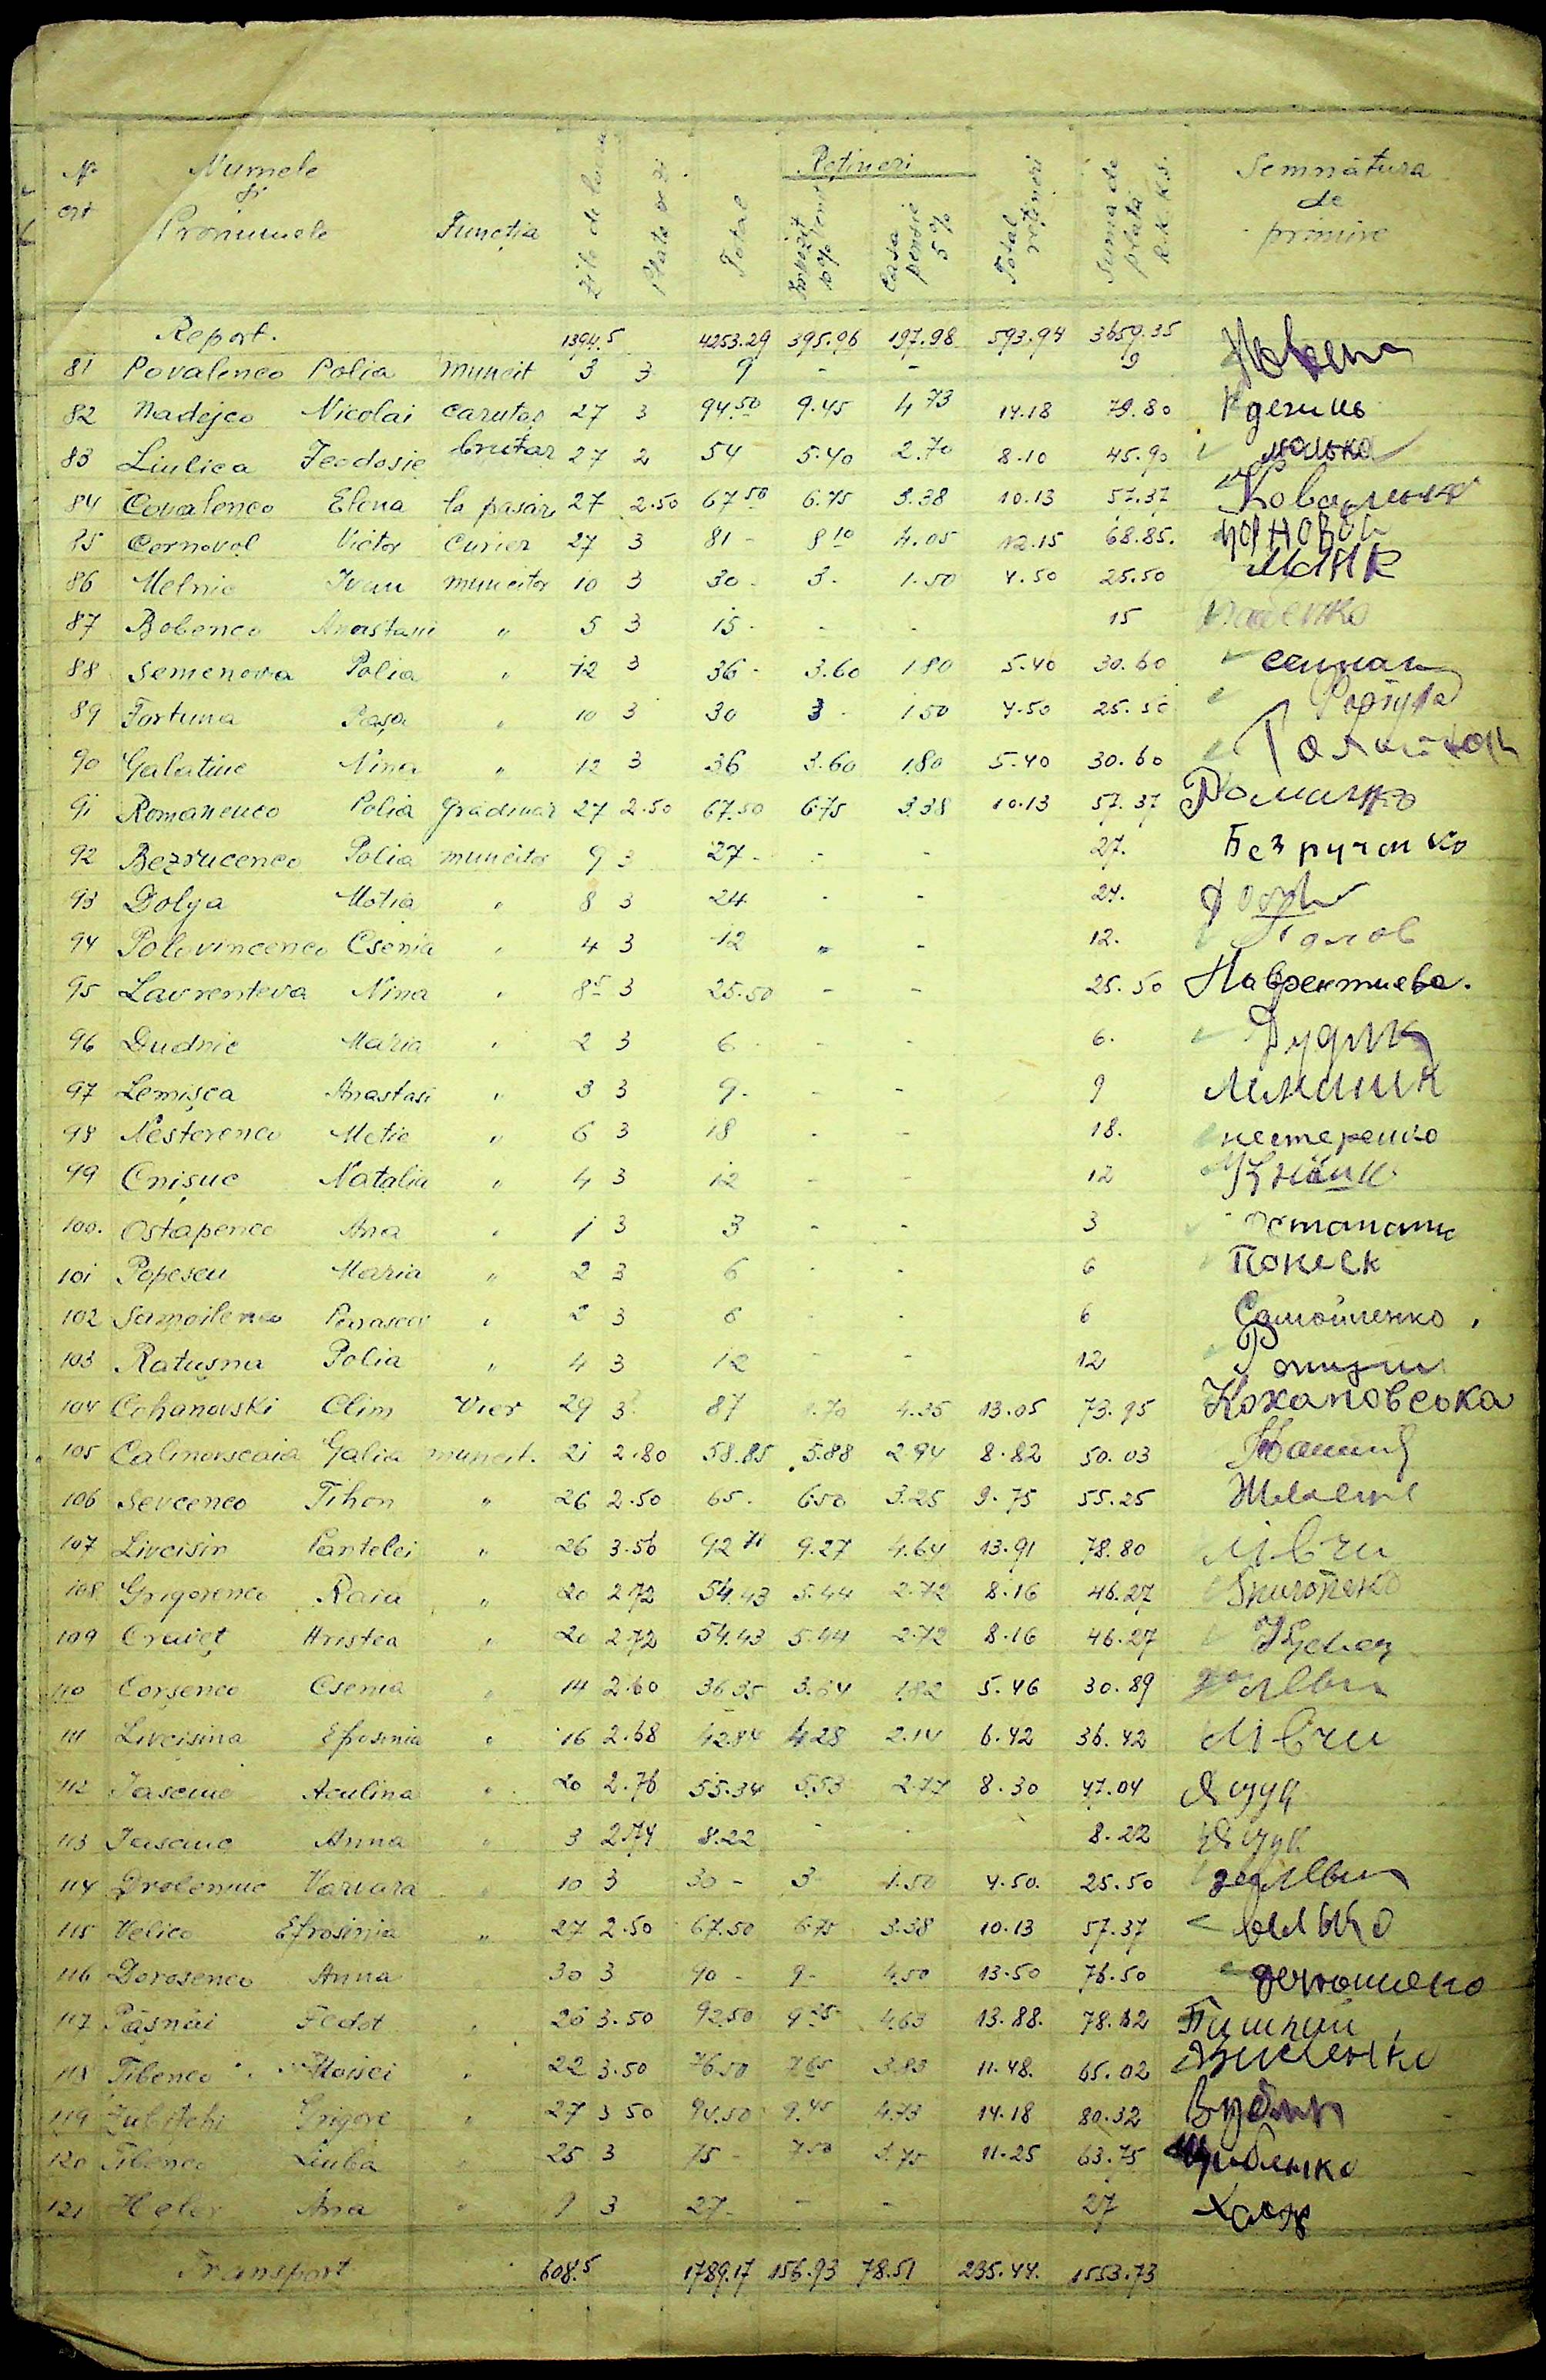 No ort Numele și Pronumele Funcția Zile de lucru Plata de zi Total Rețineri Impozit 10% Casa pensie 5% Total rețineri Suma de plată R.K.K.S. Semnătura de primire
Report. 1394.5 4253.29 395.96 197.98 593.94 3659.35
81 Povalenco Polia muncit 3 3 9 - - 9
82 Nadejco Nicolai carutaș 27 3 94.50 9.45 4.73 14.18 79.80
83 Liulica Feodosie brutar 27 2 54 5.40 2.70 8.10 45.90 люлька
84 Covalenco Elena la pasări 27 2.50 67.50 6.75 3.38 10.13 57.37
85 Cornovol Victor Curier 27 3 81 - 8.10 4.05 12.15 68.85.
86 Melnic Ivan muncitor 10 3 30 - 3. 1.50 4.50 25.50
87 Bobenco Anastasii " 5 3 15 - - - 15
88 Semenova Polia " 12 3 36 - 3.60 1.80 5.40 30.60
89 Fortuna Pașa " 10 3 30 3 - 1.50 4.50 25.50
90 Galatiuc Nina " 12 3 36 3.60 1.80 5.40 30.60
91 Romanenco Polia grădinar 27 2.50 67.50 6.75 3.38 10.13 57.37
92 Bezrucenco Polia muncitor 9 3 27 - - - 27. Безрученко
93 Dolya Motia " 8 3 24 - - 24.
94 Polovincenco Csenia " 4 3 12 " - 12. Полов
95 Lavrenteva Nina " 8.5 3 25.50 - - 25.50 Лаврентиева.
96 Dudnic Maria " 2 3 6 - - - 6. Дудник
97 Lemișca Anastasi " 3 3 9 - - - 9
98 Nesterenco Motie " 6 3 18 - - 18. нестеренко
99 Cnișuc Natalia " 4 3 12 - - 12
100. Ostapenco Ana " 1 3 3 - - 3
101 Popescu Maria " 2 3 6 - - 6
102 Samoilenco " 2 3 6 - - 6 Самойленко
103 Ratușna Polia " 4 3 12 - - 12
104 Cohanovski Clim Vier 29 3 87 8.70 4.35 13.05 73.95 Кохановська
105 Calinovscaia Galia muncit. 21 2.80 58.85 5.88 2.94 8.82 50.03
106 Sevcenco Tihon " 26 2.50 65. 6.50 3.25 9.75 55.25
107 Livcisin Pantelei " 26 3.56 92.71 9.27 4.64 13.91 78.80 Лівчи
108 Grigorenco Raia " 20 2.72 54.43 5.44 2.72 8.16 46.27
109 Craveț Hristea " 20 2.72 54.43 5.44 2.72 8.16 46.27
110 Corșenco Csenia " 14 2.60 36.35 3.64 1.82 5.46 30.89
111 Livcișina Efrosinia " 16 2.68 42.84 4.28 2.14 6.42 36.42 Лівчи
112 Iasciuc Aculina " 20 2.76 55.34 5.53 2.77 8.30 47.04
113 Iasciuc Anna " 3 2.74 8.22 - - 8.22
114 Varvara 10 3 30 - 3 1.50 4.50. 25.50
115 Velico Efrosinia " 27 2.50 67.50 6.75 3.38 10.13 57.37
116 Dorosenco Anna 30 3 90 - 9 - 4.50 13.50 76.50
117 Pășnai Fedot " 26 3.50 92.50 9.25 4.63 13.88. 78.62
118 Tibenco Moisei " 22 3.50 76.50 7.65 3.83 11.48. 65.02
119 Grigore " 27 3.50 94.50 9.45 4.73 14.18 80.32
120 Tibenco Liuba 25 3 75 - 7.50 3.75 11.25 63.75
121 Heler Ana " 9 3 27 - - - 27
Transport 608.5 1789.17 156.93 78.51 235.44. 1553.73